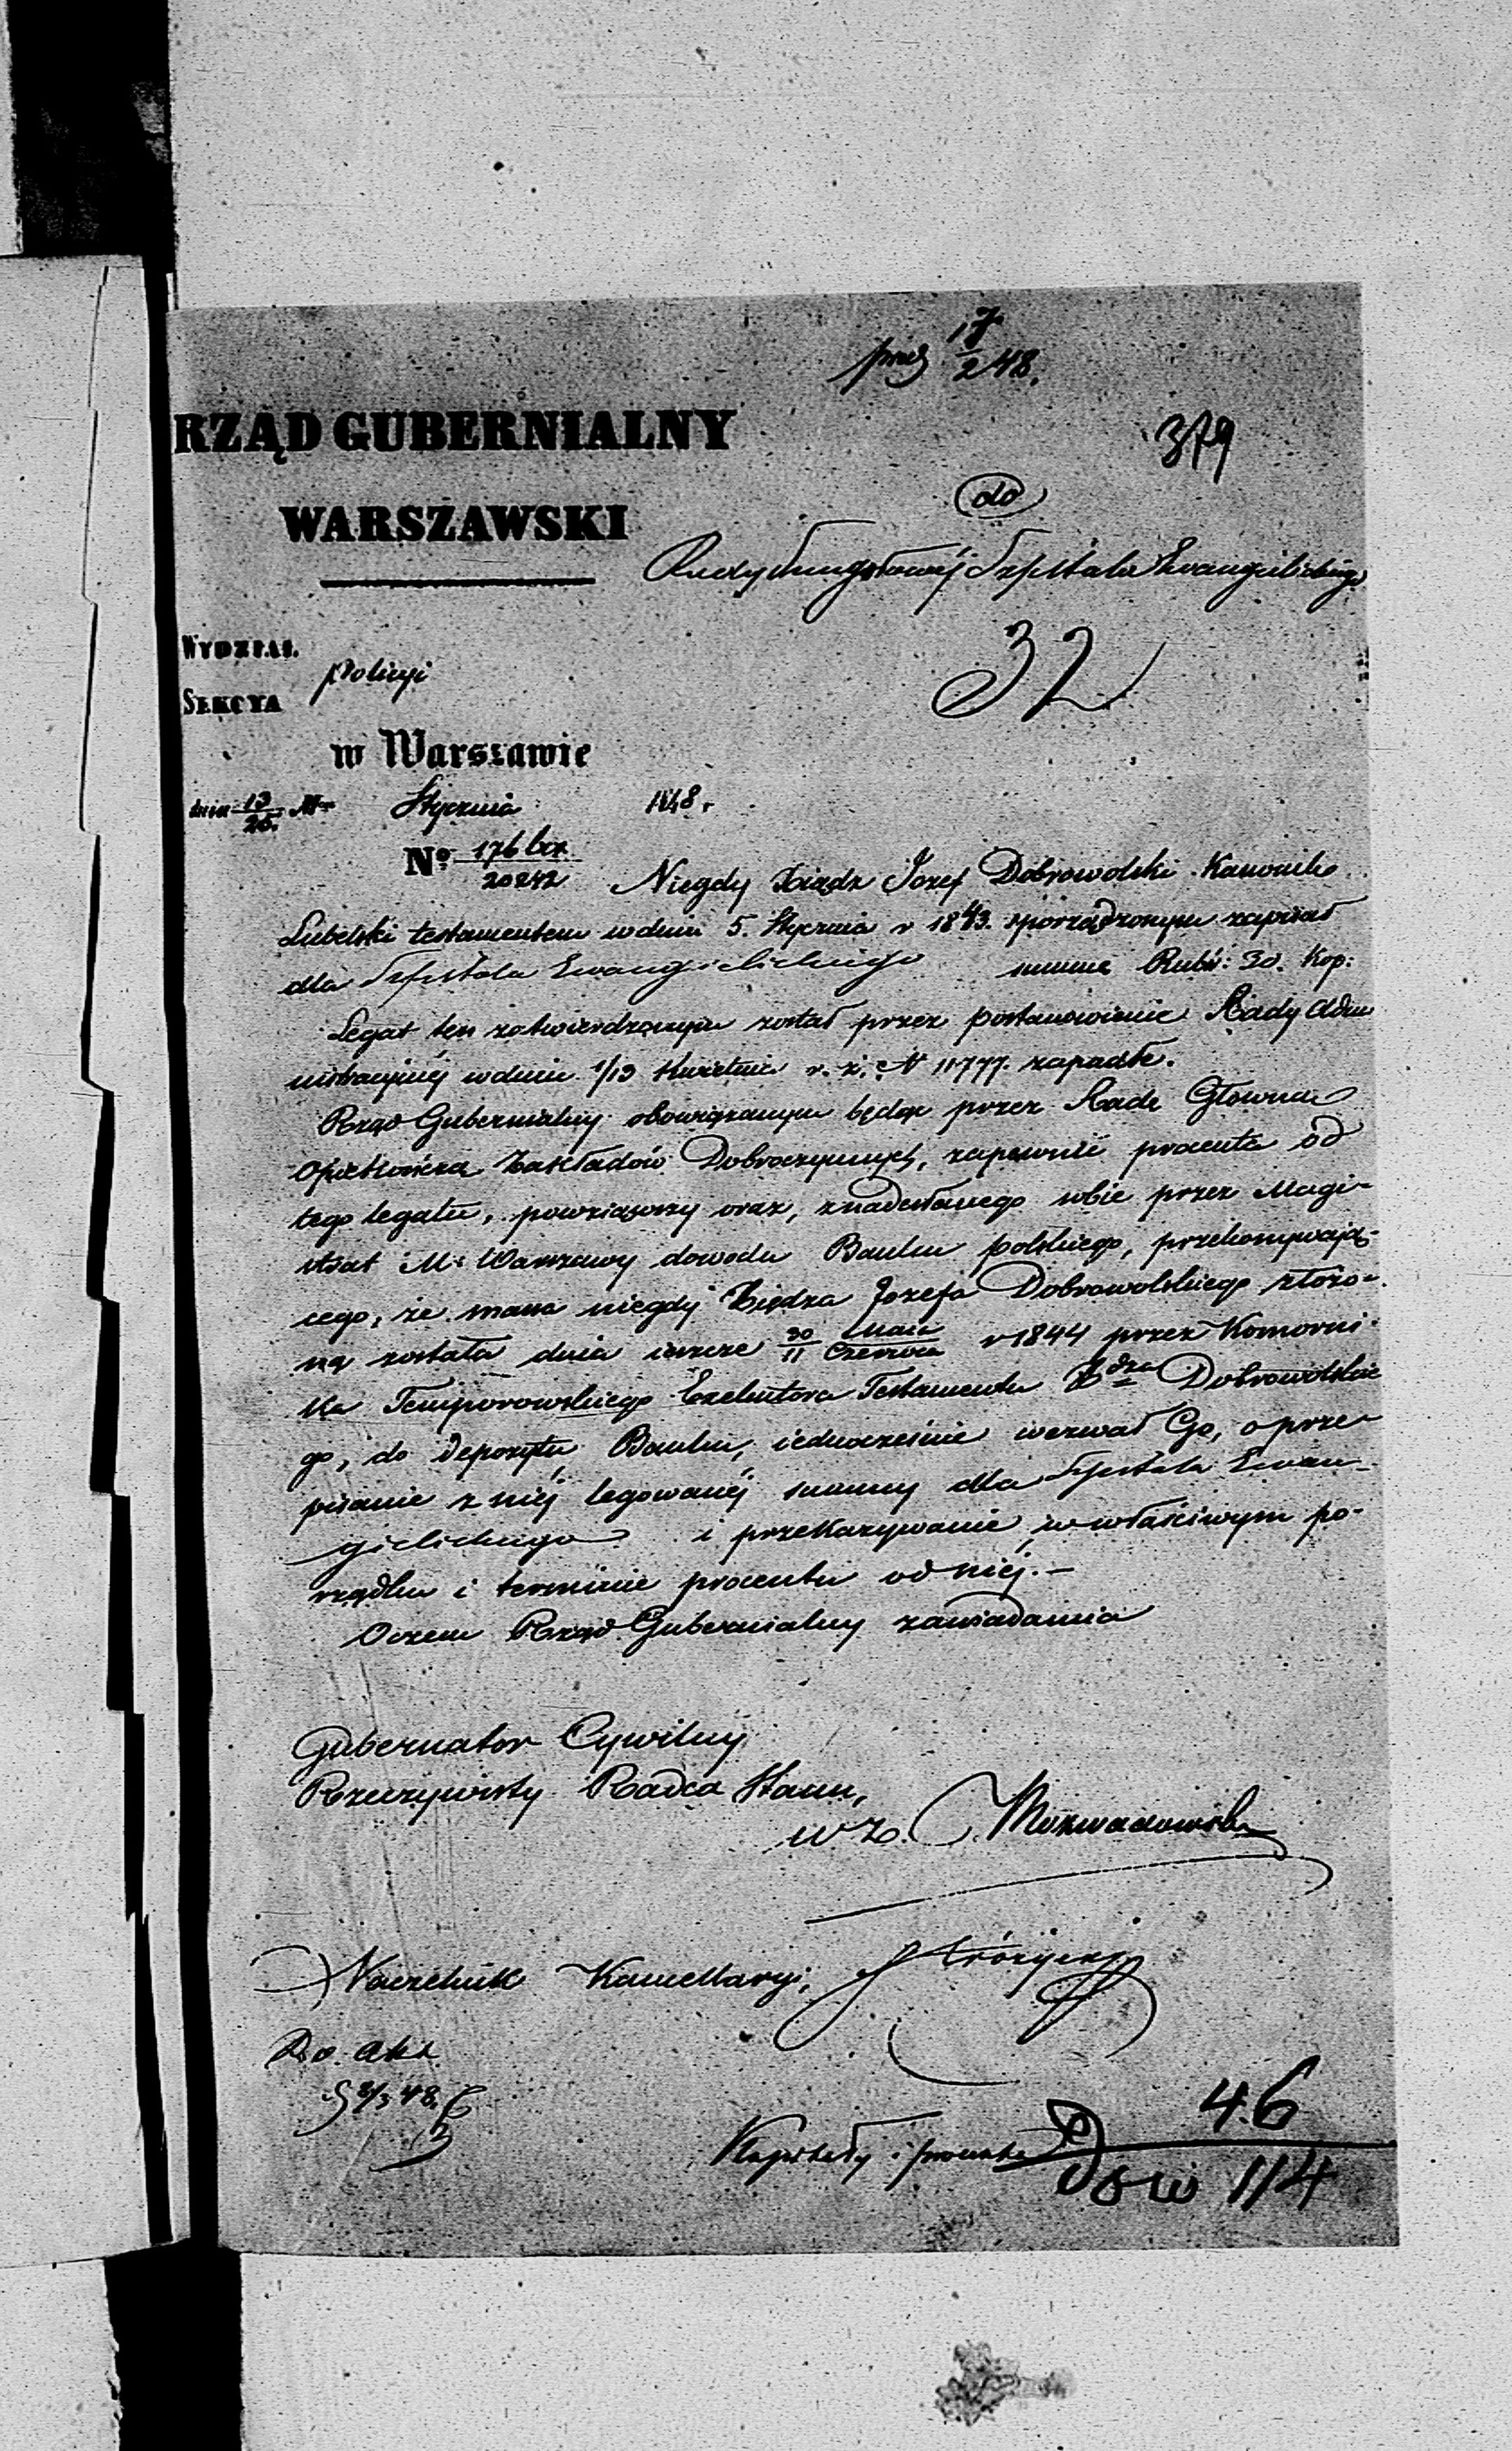 prez 17/2 48.
379
RZĄD GUBERNIALNY
WARSZAWSKI
do
Rady Szpitala Ewangelickiego
32
WYDZIAŁ
Policyi
SEKCYA
w Warszawie
dnia 13/25 Stycznia 1848 r.
No 176
20242
Niegdy Xiądz Jozef Dobrowolski Kanonik
Lubelski testamentem w dniu 5. Stycznia r 1843. sporządzonym zapisał
dla Szpitala Ewangielickiego summę Rubli: 30. Kop:
Legat ten zatwierdzonym został przez postanowienie Rady Admi
nistracyjnéj w dniu 1/13 Kwietnia r. z. N 11777. zapadłe.
Rząd Gubernialny obowiązanym będąc przez Radę Głowną
Opiekuńcza Zakładów Dobroczynnych, zapewnić procenta od
tego legatu, powziąwszy oraz, z nadesłanego sobie przez Magi-
strat M: Warszawy dowodu Banku polskiego, przekonywają-
cego, że massa niegdy Xiędza Jozefa Dobrowolskiego złożo-
ną została dnia ieszcze 30 Maia / 11 Czerwca r 1844 przez Komorni-
ka Temporowskiego Exekutora Testamentu Xdza Dobrowolskie
go, do depozytu Banku, iednocześnie wezwał Go, o prze-
pisanie z niéj legowanéj summy dla Szpitala Ewan-
gielickiego i przekazywanie, w właściwym po-
rządku i terminie procentu od niéj.-
O czem Rząd Gubernialny zawiadamia
Gubernator Cywilny
Rzeczywisty Radca Stanu,
w z.
Naczelnik Kancellaryi,
Do. Akt
8/3 48.
Kapitały i procenta
46
Dow 114